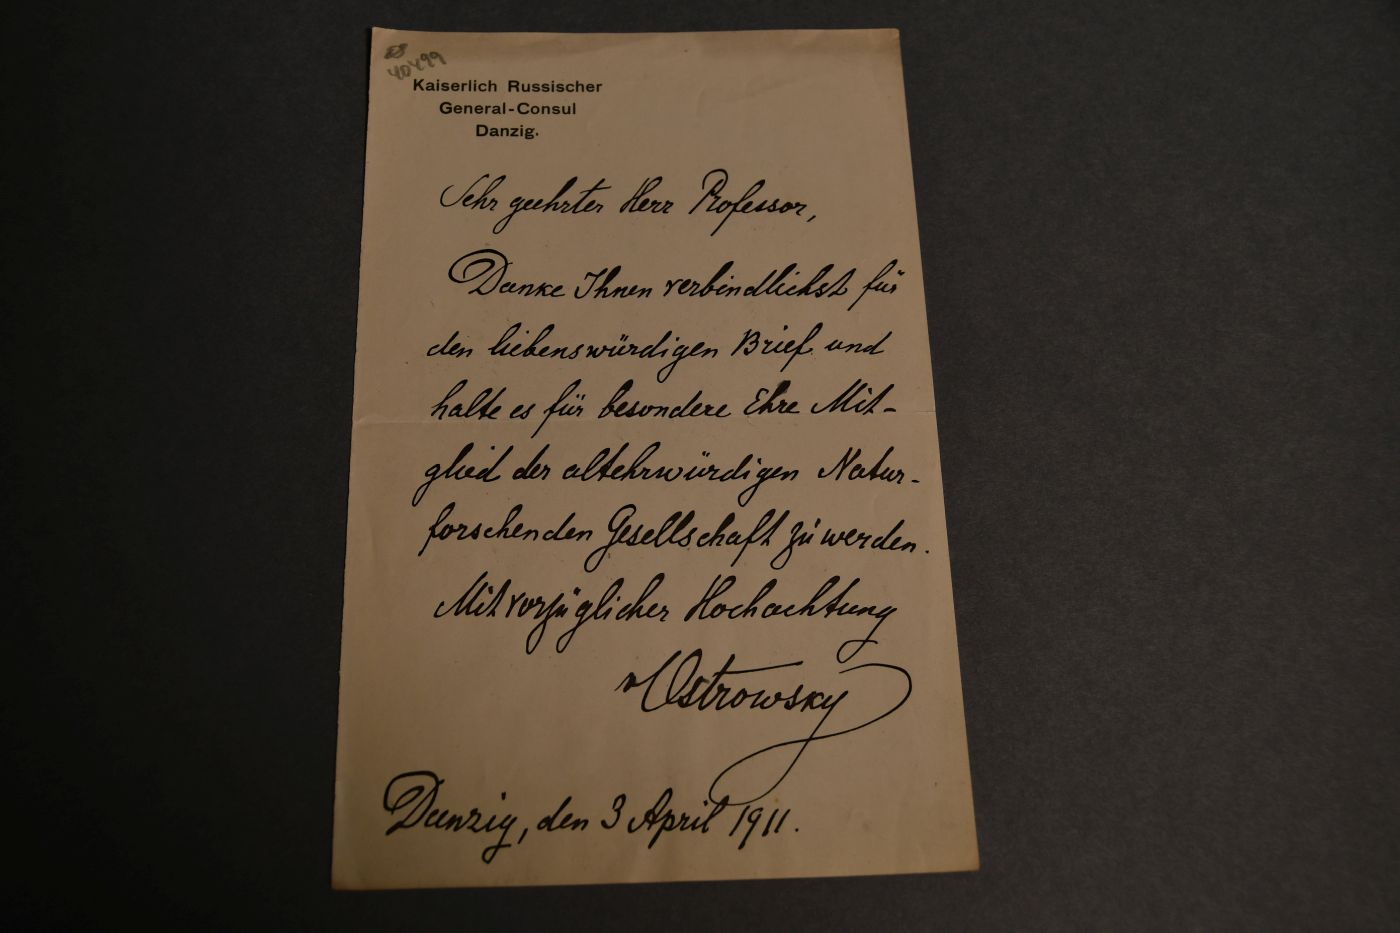 40499
Kaiserlich Russischer
General-Consul
Danzig.
Sehr geehrter Herr Professor,
Danke Ihnen verbindlichst für
den liebenswürdigen Brief und
halte es für besondere Ehre Mit-
glied der altehrwürdigen Natur-
forschenden Gesellschaft zu werden.
Mit vorzüglicher Hochachtung
v Ostrowsky
Danzig, den 3 April 1911.